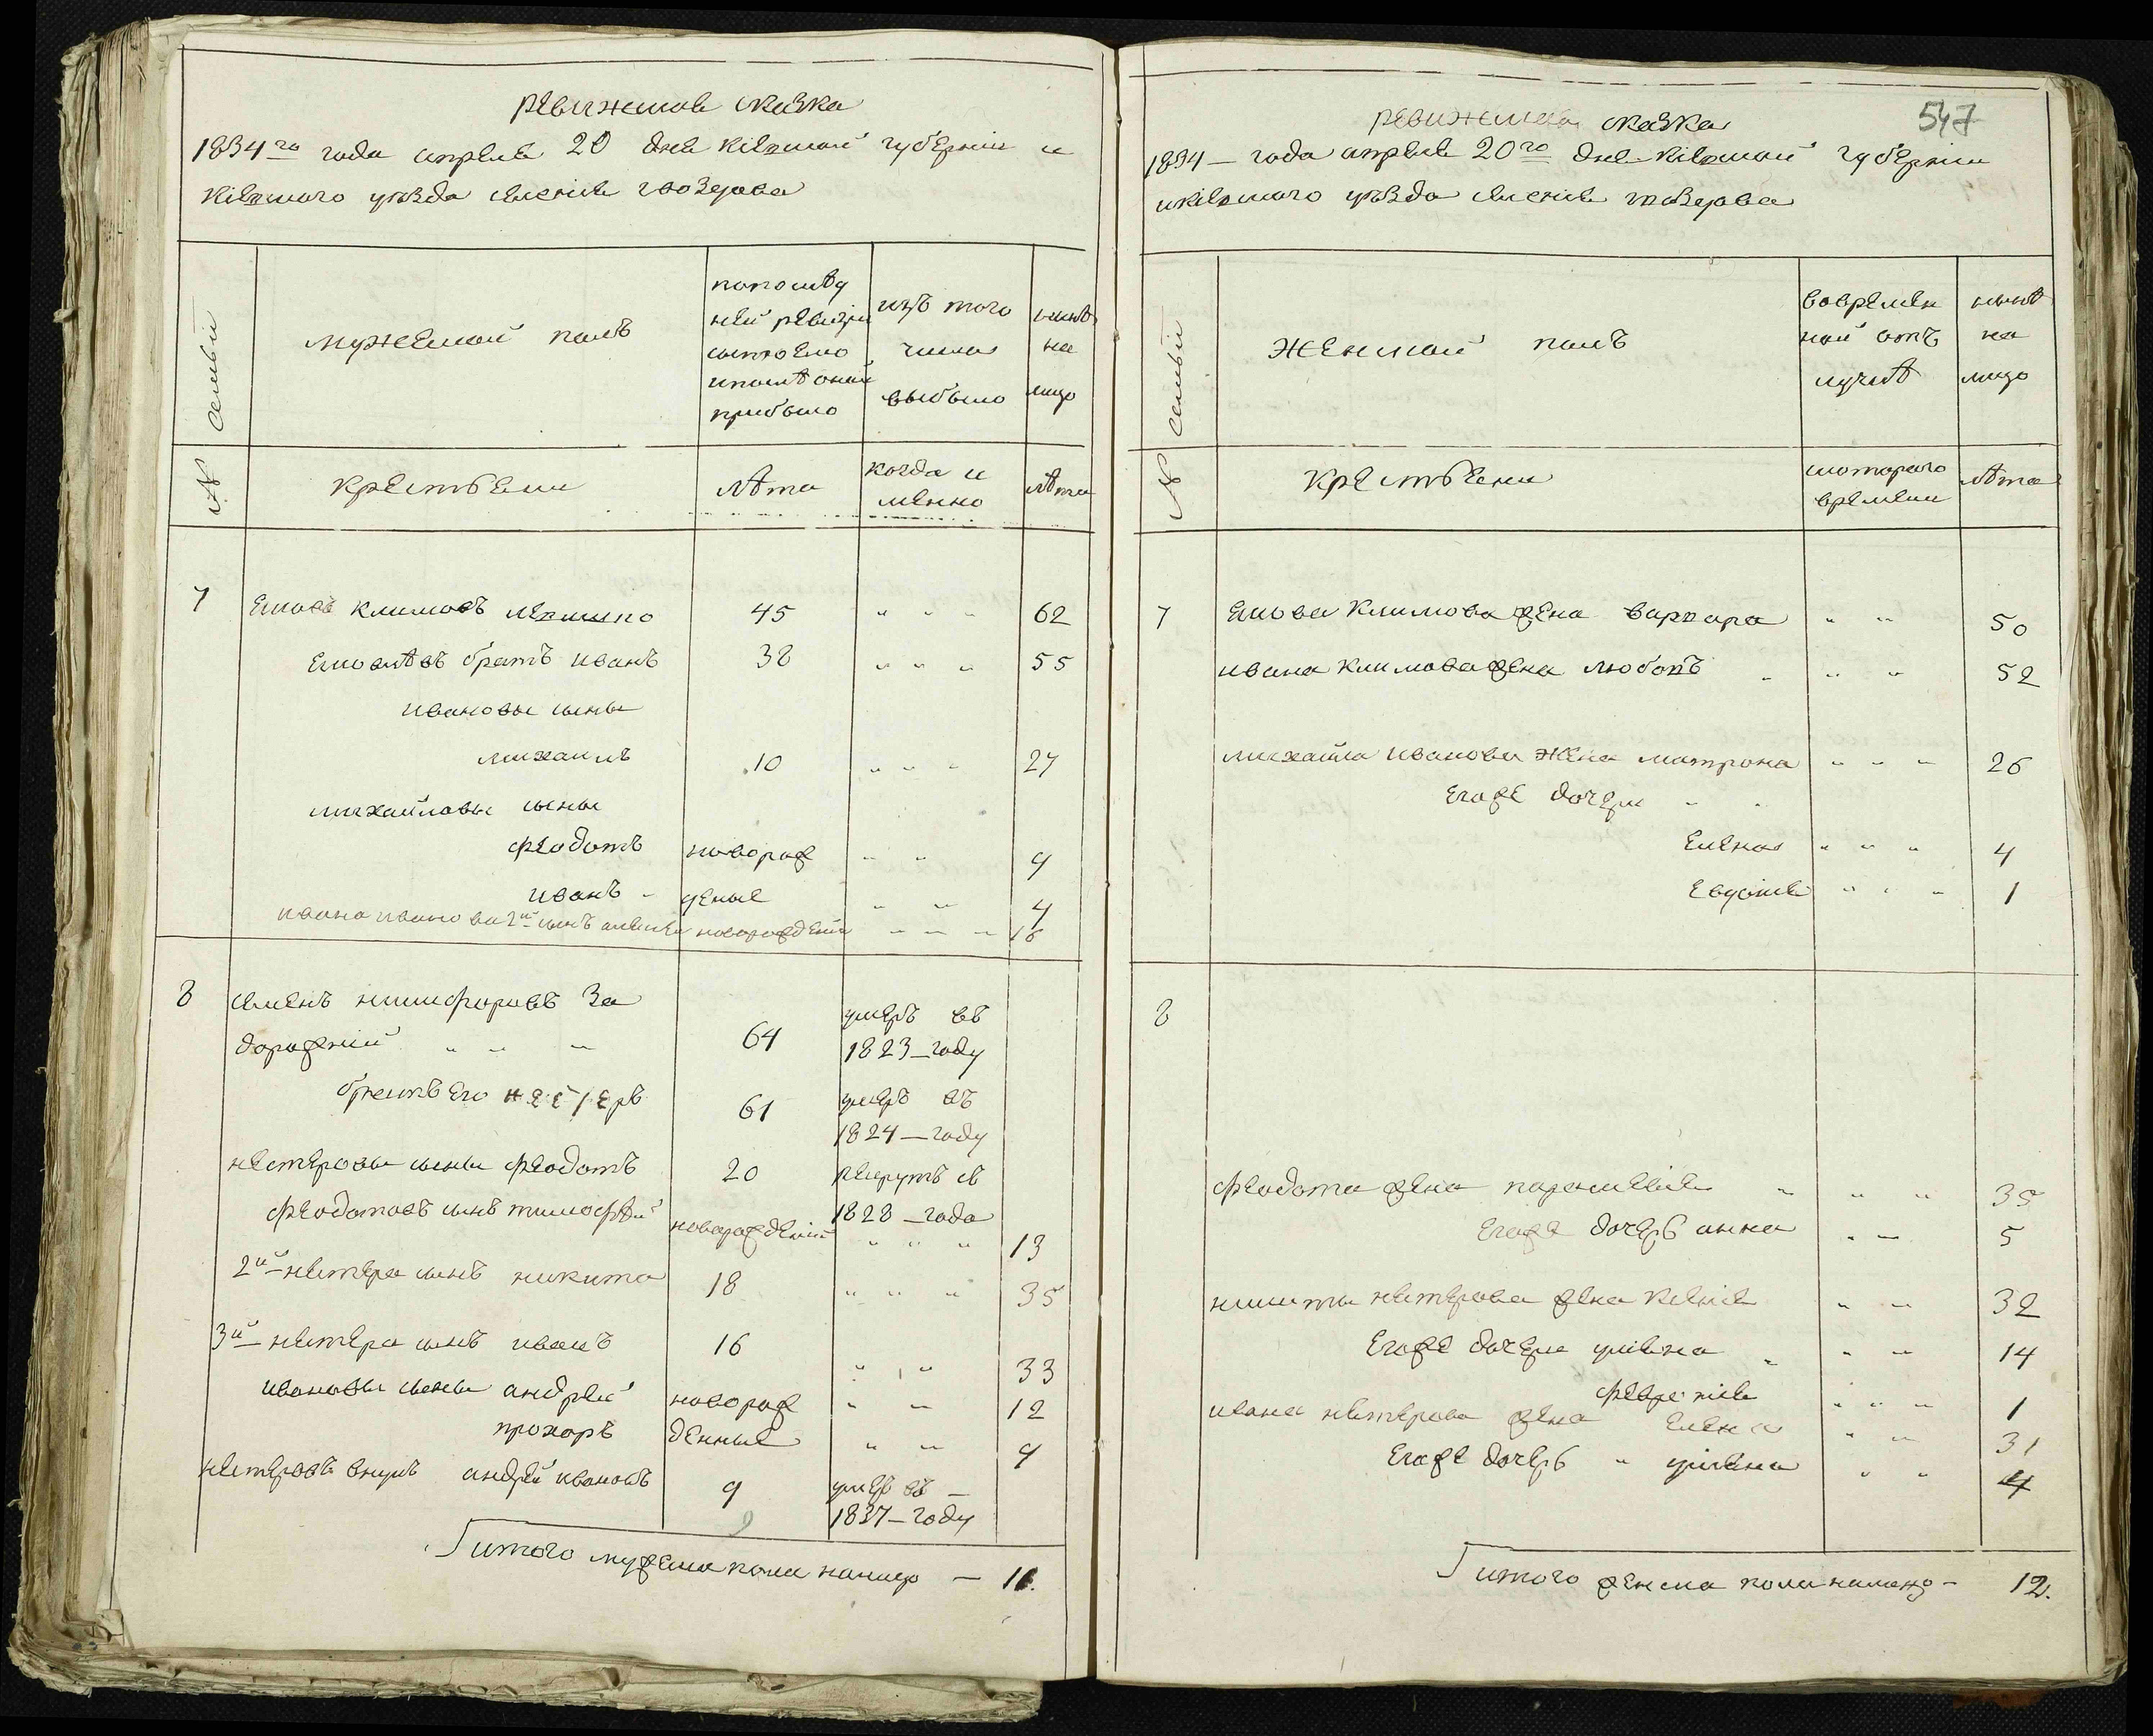 ревижская сказка
1834го года апреля 20 дня Кіевской губерніи и
Кіевского уѣзда селенія гвоздова
семьи
мужеской полъ
попослѣд
ней ревизіи
состояло
ипослѣ оной
прибыло
изъ того
числа
выбыло
нынѣ
на
лицо
№
крестьяни
лѣта
когда и
мѣнно
лѣта
7
климовъ
45
62
братъ иванъ
38
55
ивановы сыны
михаилъ
10
27
михайловы сыны
феодотъ
новорож
9
иванъ
деные
4
ивана иванова 2й сынъ новорожденый
16
8
семенъ никифоровъ За
дорожній
64
умеръ въ
1823 году
братъ его нестеръ
61
умеръ въ
1824 — году
нестеровы сыны феодотъ
20
рекрутъ съ
1828 — года
феодотовъ сынъ тимофѣй
новорожденій
13
2й нестера сынъ никита
18
35
3й нестера сынъ иванъ
16
33
ивановы сыны андрей
новорож
12
прохоръ
денные
9
нестеровъ внукъ андрей ивановъ
9
умеръ въ —
1837 — году
итого мужеска пола налицо — 11.
547
ревижская сказка
1834 — года апреля 20го дня Кіевской губерніи
икіевского уѣзда селенія гвоздова
семьи
Женской полъ
вовремен
ной отъ
лучкѣ
нынѣ
на
лицо
№
крестьяни
скотораго
времени
лѣта
7
климова жена варвара
50
ивана климова жена любовъ
52
михайла иванова жена матрона
26
Егоже дочери
Елена
4
Евдокія
1
8
феодота жена параскевія
35
Егоже дочерь анна
5
никиты нестерова жена Ксенія
32
Егоже дочери уліяна
14
февронія
1
ивана нестерова жена Елена
31
Егоже дочерь уліяна
4
итого женска пола налицо — 12.